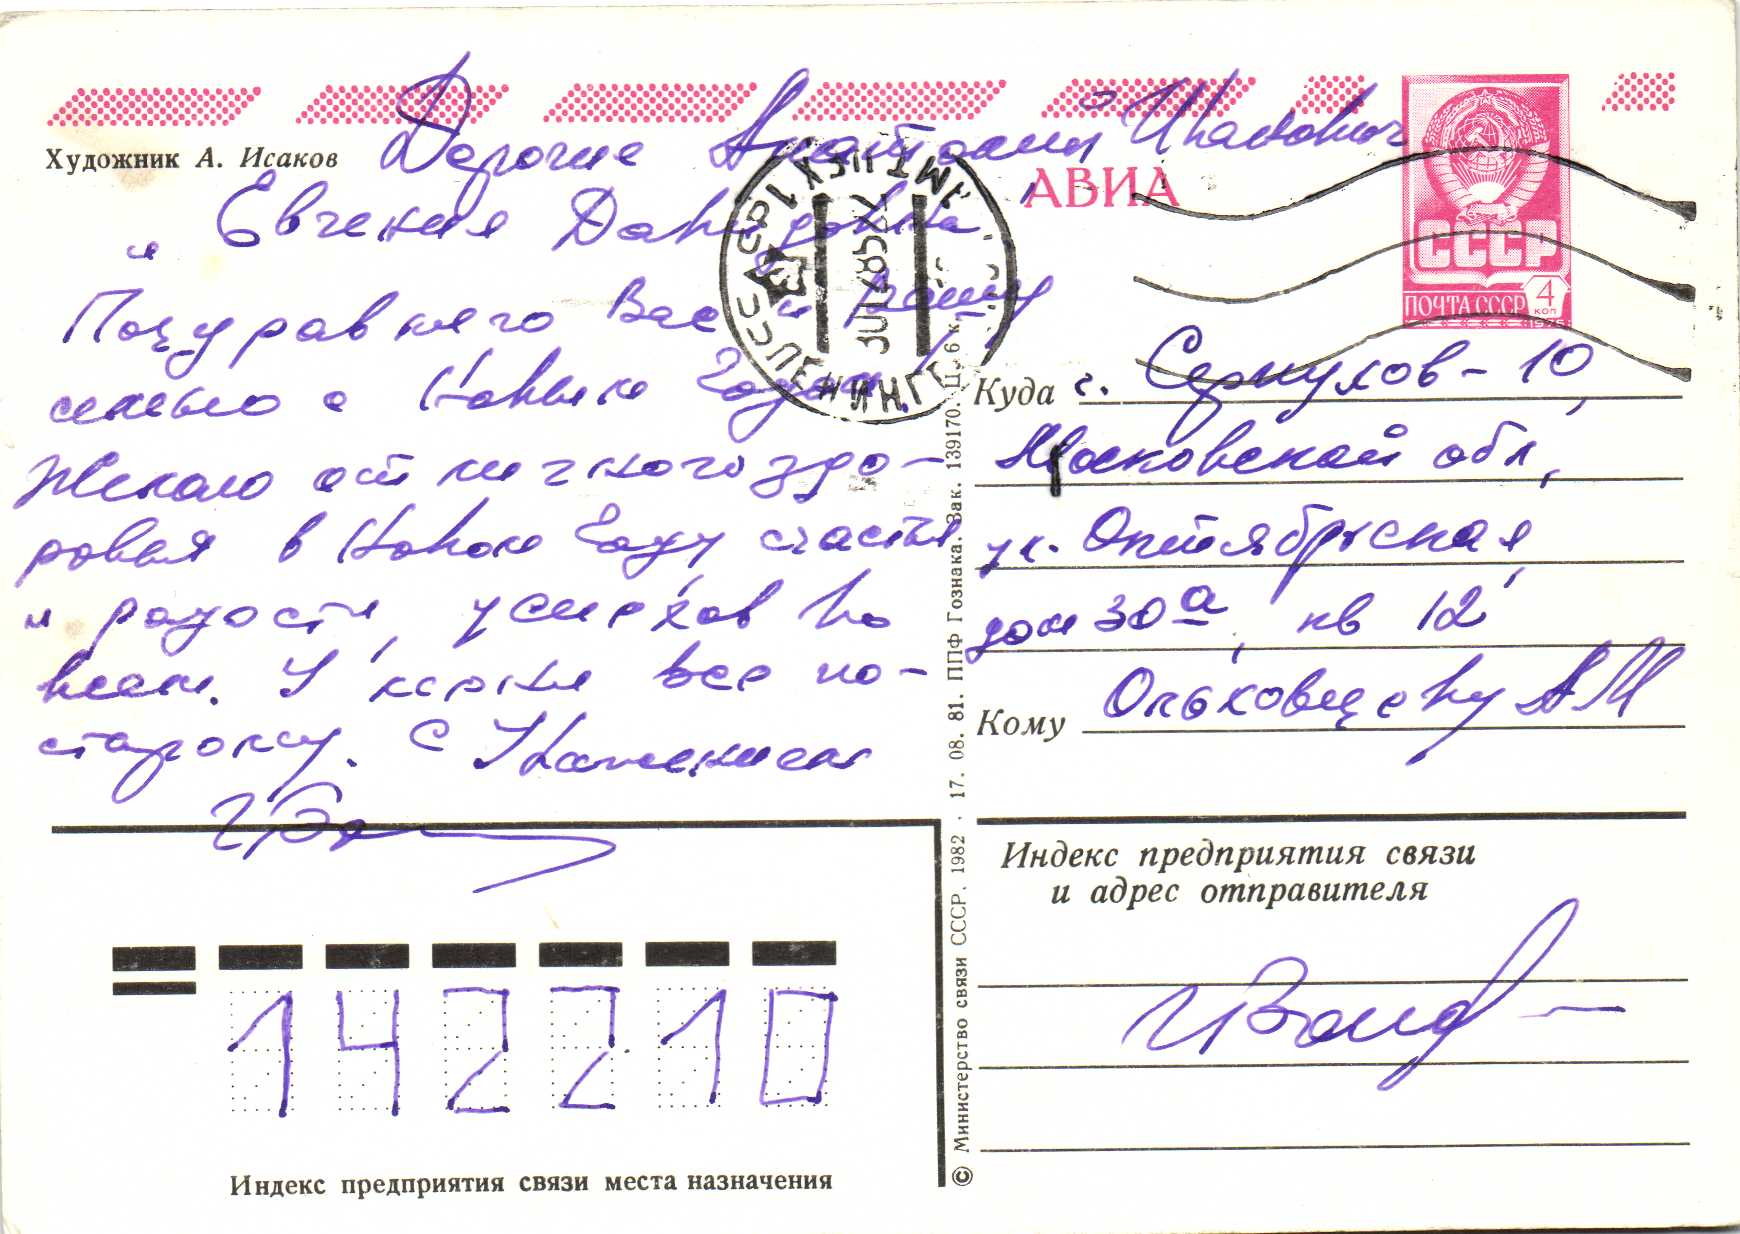 Художник А. Исаков
Дорогие Анатолий Иванович
и Евгения Давидовна
Поздравляю Вас и Вашу
семью с Новым Годом!
Желаю отличного здо-
ровья в Новом Году счастья
и радости, успехов во
всем. У меня все по-
старому. С Уважением
АВИА
СССР
ПОЧТА СССР 4
КОП
Куда г. Серпухов-10,
Московской обл,
ул. Октябрьская,
дом 30а, кв 12
Кому Ольховцеву АМ
Индекс предприятия связи
и адрес отправителя
142210
Индекс предприятия связи места назначения
© Министерство связи СССР. 1982 · 17. 08. 81. ППФ Гознака. Зак. 139170. Ц. 6 к.